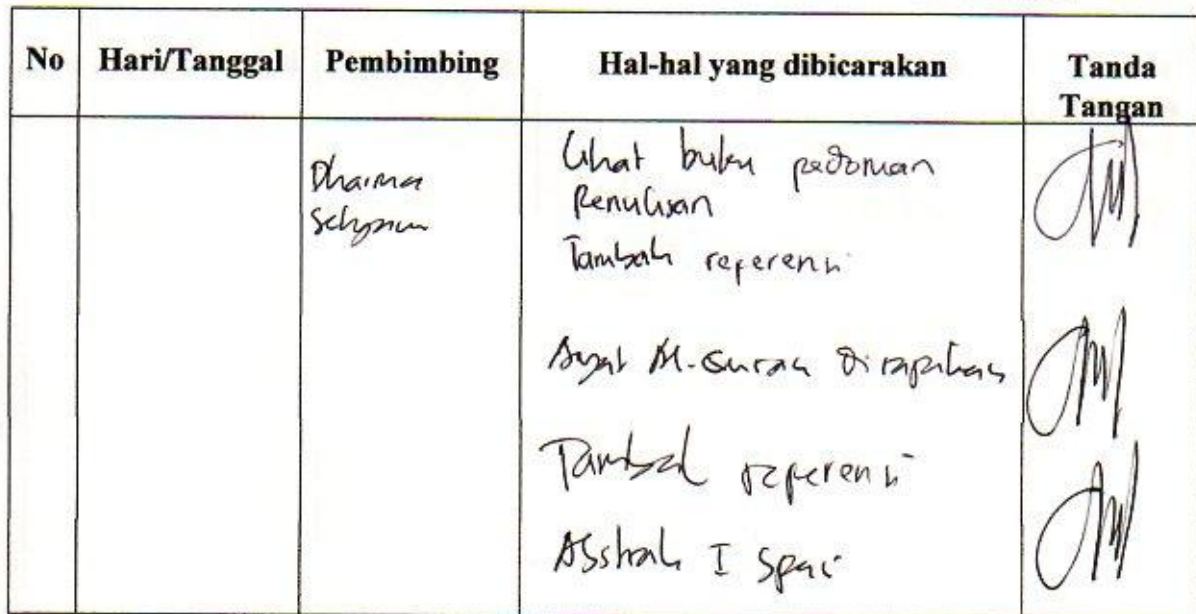 No Hari/Tanggal Pembimbing Hal-hal yang dibicarakan Tanda
Tangan
Dharma
Lihat buku pedoman
Penulisan
Tambah referensi
Ayat Al-Quran dirapihkan
Tambah referensi
Abstrak 1 spasi